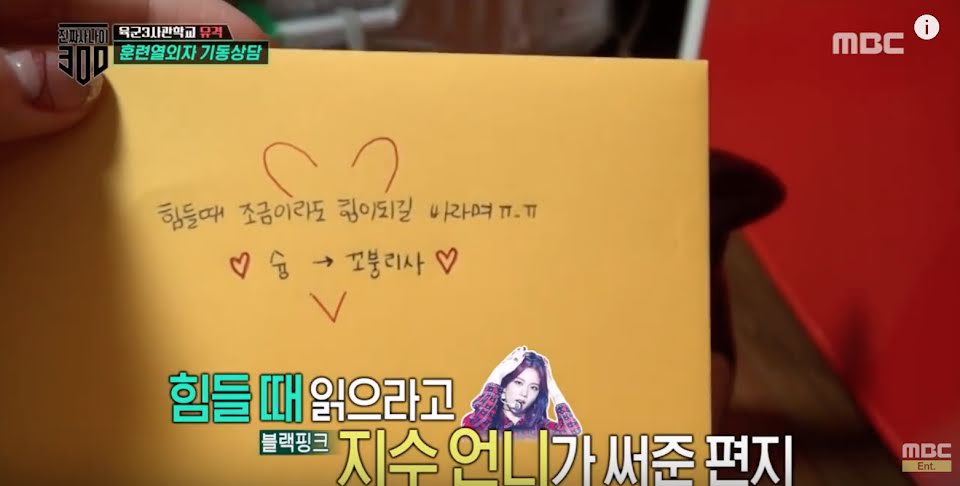 진짜사나이
300
육군3사관학교 뮤격
훈련열외자 기동상담
MBC
i
힘들때 조금이라도 힘이되길 바라며ㅠ-ㅠ
♡ 슘 → 꼬붕리사 ♡
힘들 때 읽으라고
블랙핑크 지수 언니가 써준 편지
MBC
Ent.